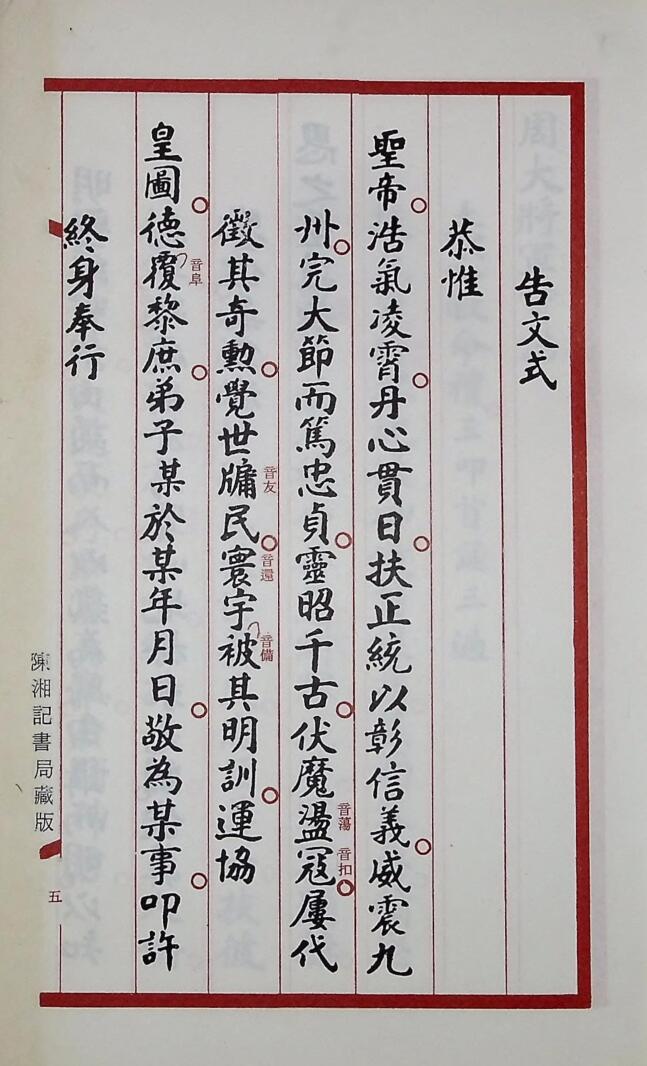 告文式
恭惟
聖帝浩氣凌霄丹心貫日扶正統以彰信義威震九
州完大節而篤忠貞靈昭千古伏魔盪寇屢代
音蕩
音扣
徵其奇勳覺世牖民寰宇被其明訓運協
音友
音還
音備
皇圖德覆黎庶弟子某於某年月日敬為某事叩許
音阜
終身奉行
陳湘記書局藏版
五